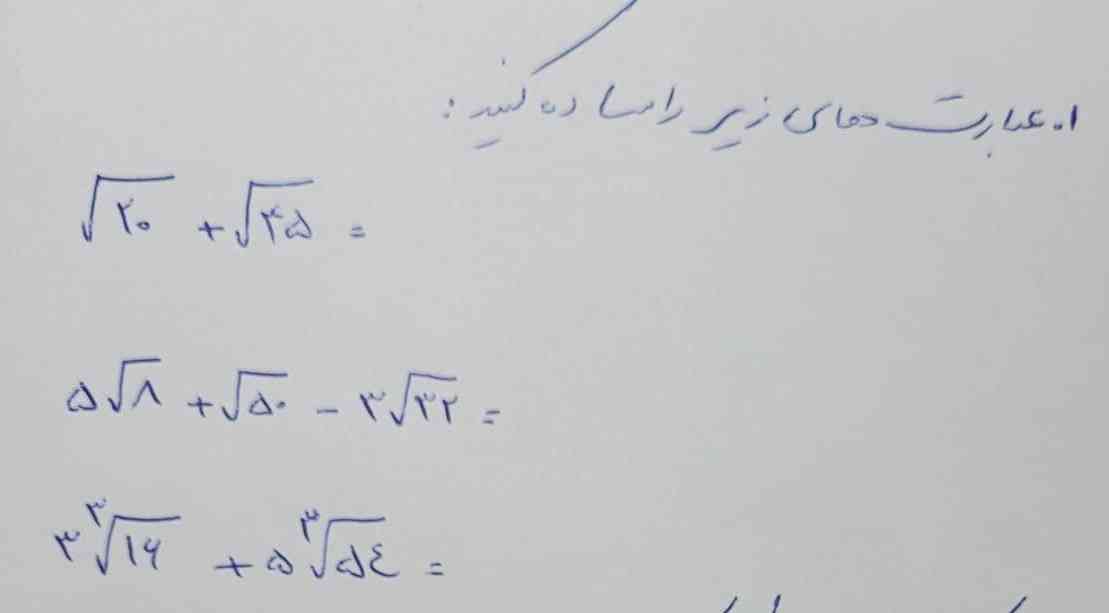 ۱. عبارت های زیر را ساده کنید:
√۲۰ + √۴۵ =
۵√۸ + √۵۰ - ۳√۳۲ =
۳ ³√۱۶ + ۵ ³√۵۴ =